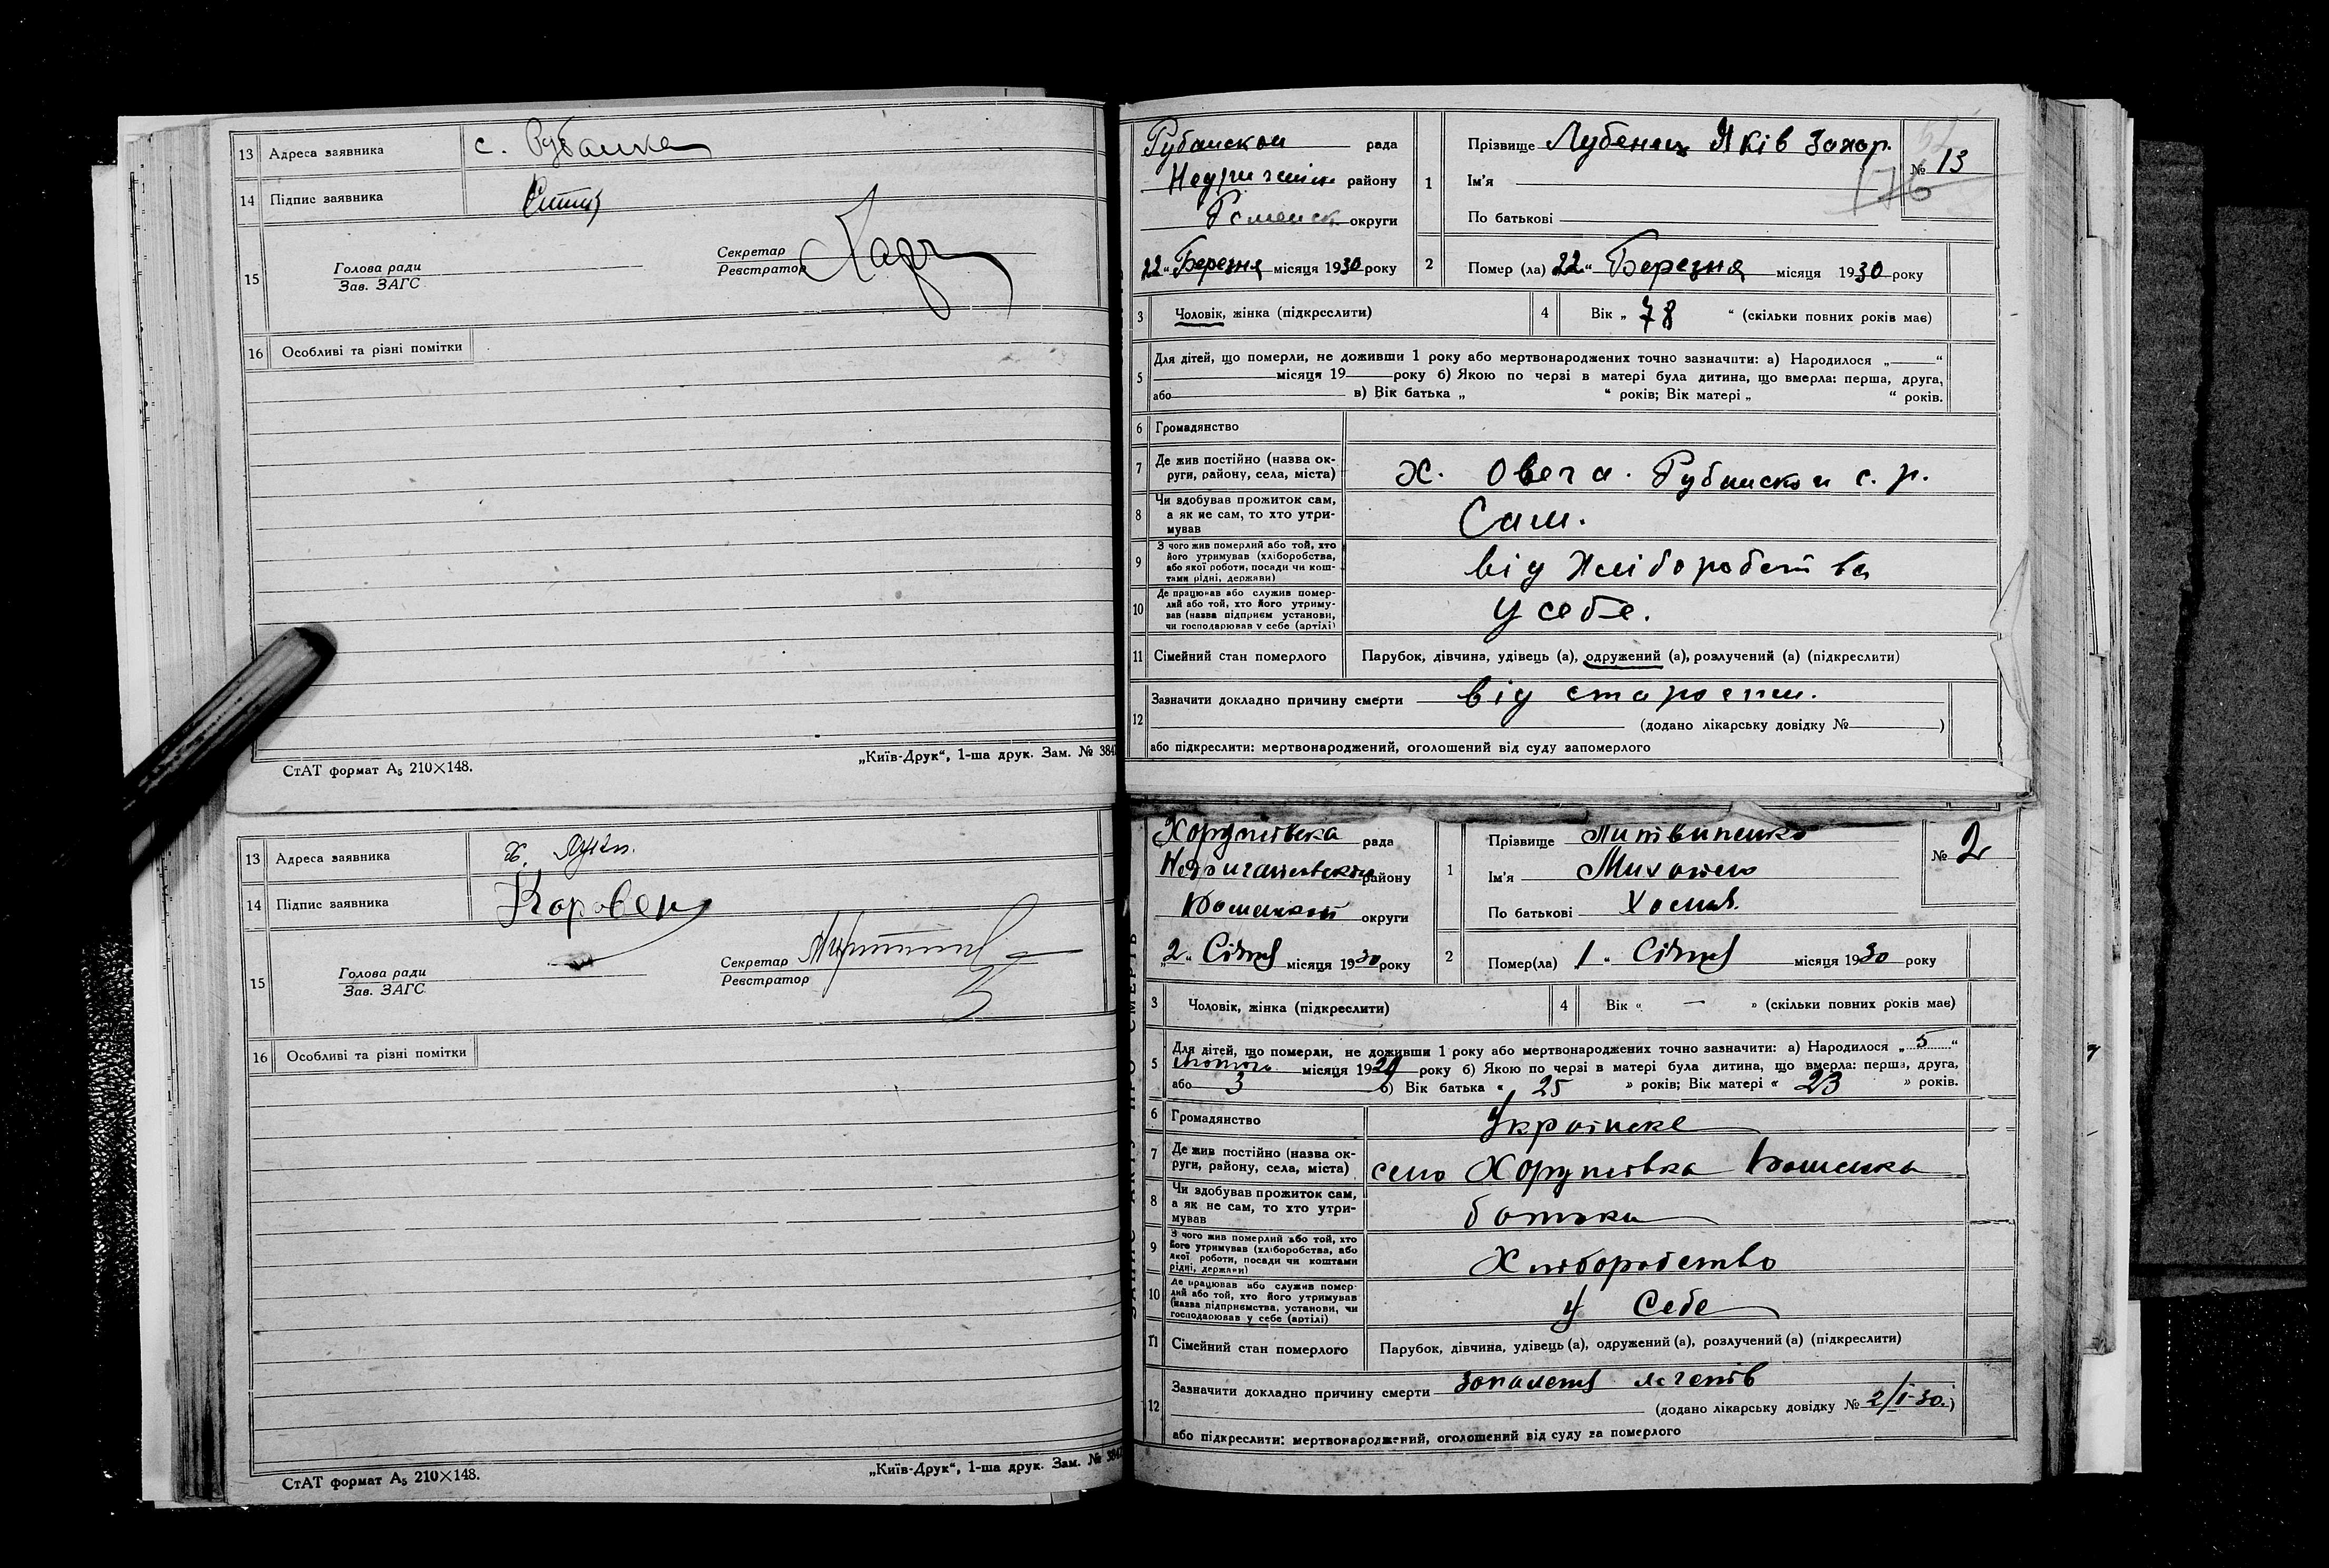 13 Адреса заявника с. Рубанка
14 Підпис заявника
15 Голова ради
Зав. ЗАГС
Секретар
Реєстратор
16 Особливі та різні помітки
СтАТ формат А5 210×148.
„Київ-Друк“, 1-ша друк. Зам. № 384
13 Адреса заявника х.
14 Підпис заявника
15 Голова ради
Зав. ЗАГС
Секретар
Реєстратор
16 Особливі та різні помітки
СтАТ формат А5 210×148.
„Київ-Друк“, 1-ша друк. Зам. № 384
Рубанской рада
району
Роменск округи
„22“ Березня місяця 1930 року
1 Прізвище Лубенець Яків Захар.
Ім'я
По батькові
№ 13
176
2 Помер (ла) „22“ Березня місяця 1930 року
3 Чоловік, жінка (підкреслити)
4 Вік „ 78 “ (скільки повних років має)
5 Для дітей, що померли, не доживши 1 року або мертвонароджених точно зазначити: а) Народилося „ “
місяця 19 року б) Якою по черзі в матері була дитина, що вмерла: перша, друга,
або в) Вік батька „ “ років; Вік матері „ “ років.
6 Громадянство
7 Де жив постійно (назва ок-
руги, району, села, міста) х. Овеча. Рубанской с. р.
8 Чи здобував прожиток сам,
а як не сам, то хто утри-
мував Сам.
9 З чого жив померлий або той, хто
його утримував (хліборобства,
або якої роботи, посади чи кош-
тами рідні, держави) від Хліборобства
10 Де працював або служив помер-
лий або той, хто його утриму-
вав (назва підприєм установи,
чи господарював у себе (артілі) У себе.
11 Сімейний стан померлого Парубок, дівчина, удівець (а), одружений (а), розлучений (а) (підкреслити)
12 Зазначити докладно причину смерти від старости.
(додано лікарську довідку № )
або підкреслити: мертвонароджений, оголошений від суду запомерлого
рада
району
округи
„2“ Січня місяця 1930 року
1 Прізвище Литвиненко
Ім'я
По батькові
№ 2
2 Помер(ла) 1 „ Січня місяця 1930 року
3 Чоловік, жінка (підкреслити)
4 Вік “ — ” (скільки повних років має)
5 Для дітей, що померли, не доживши 1 року або мертвонароджених точно зазначити: а) Народилося „ 5 “
місяця 1929 року б) Якою по черзі в матері була дитина, що вмерла: перша, друга,
або 3 в) Вік батька “ 25 ” років; Вік матері “ 23 ” років.
6 Громадянство Українське
7 Де жив постійно (назва ок-
руги, району, села, міста) село
8 Чи здобував прожиток сам,
а як не сам, то хто утри-
мував батьки
9 З чого жив померлий або той, хто
його утримував (хліборобства, або
якої роботи, посади чи коштами
рідні, держави) Хліборобство
10 Де працював або служив помер-
лий або той, хто його утримував
(назва підприємства, установи, чи
господарював у себе (артілі) у Себе
11 Сімейний стан померлого Парубок, дівчина, удівець (а), одружений (а), розлучений (а) (підкреслити)
12 Зазначити докладно причину смерти легенів
(додано лікарську довідку № 2/I-30.)
або підкреслити: мертвонароджений, оголошений від суду за померлого